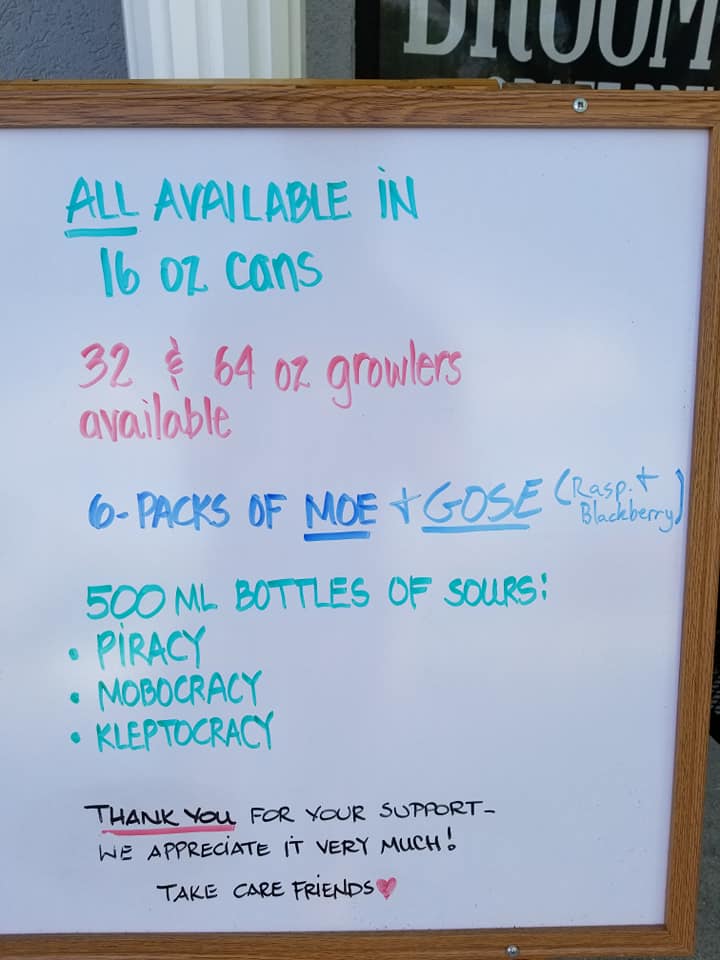 BROOM
ALL AVAILABLE IN
16 oz cans
32 & 64 oz growlers
available
6-PACKS OF MOE + GOSE (Rasp. + Blackberry)
500 ML BOTTLES OF SOURS:
• PIRACY
• MOBOCRACY
• KLEPTOCRACY
THANK YOU FOR YOUR SUPPORT-
WE APPRECIATE IT VERY MUCH!
TAKE CARE FRIENDS♥